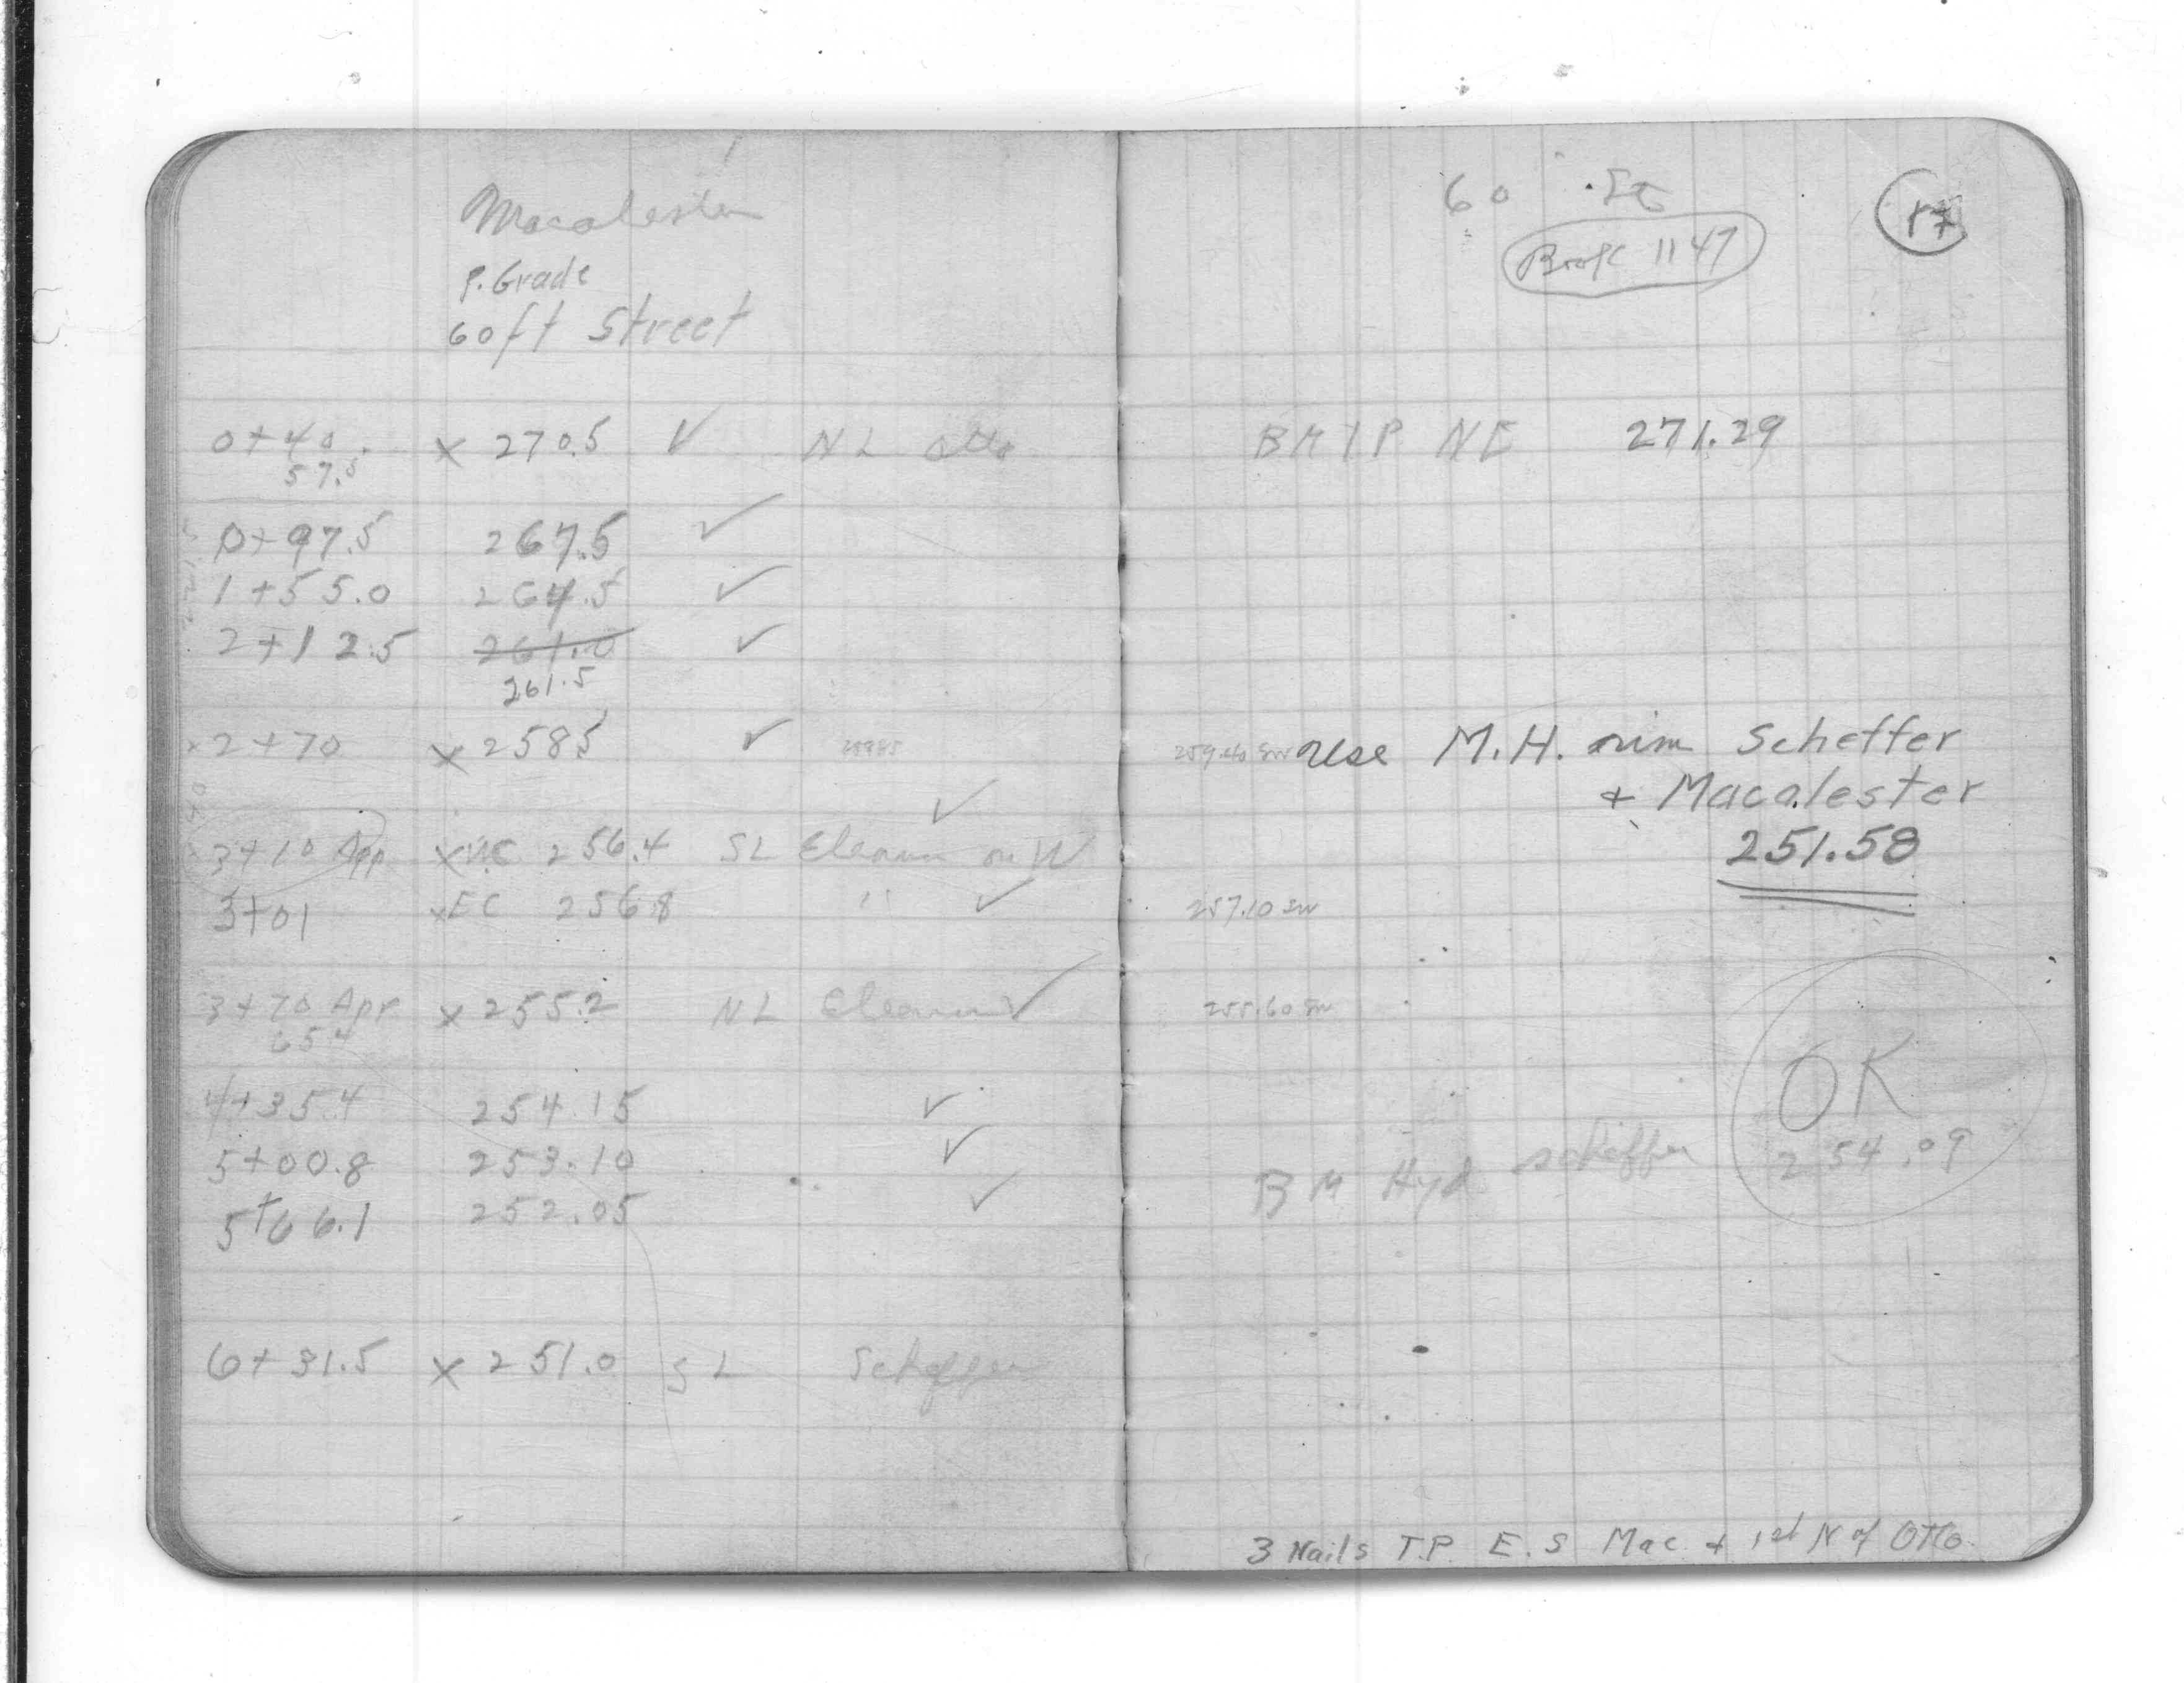 Macalester
P. Grade
60 ft Street
0+40 x 270.5 ✓ NL Otto
57.5
0+97.5 267.5 ✓
1+55.0 264.5 ✓
2+12.5 261.0 ✓
261.5
2+70 x 258.5 ✓
3+10 App x WC 256.4 SL Eleanor on W ✓
3+01 x EC 256.8 " ✓
3+70 Apr x 255.2 NL Eleanor ✓
65.4
4+35.4 254.15 ✓
5+00.8 253.10 ✓
5+66.1 252.05 ✓
6+31.5 x 251.0 SL Scheffer
60 St
Book 1147
17
BM IP NE 271.29
259.40 SW use M.H. rim Scheffer
+ Macalester
251.58
257.10 SW
255.60 SW
OK
BM Hyd Scheffer 254.09
3 Nails T.P. E.S Mac + 1st N of Otto